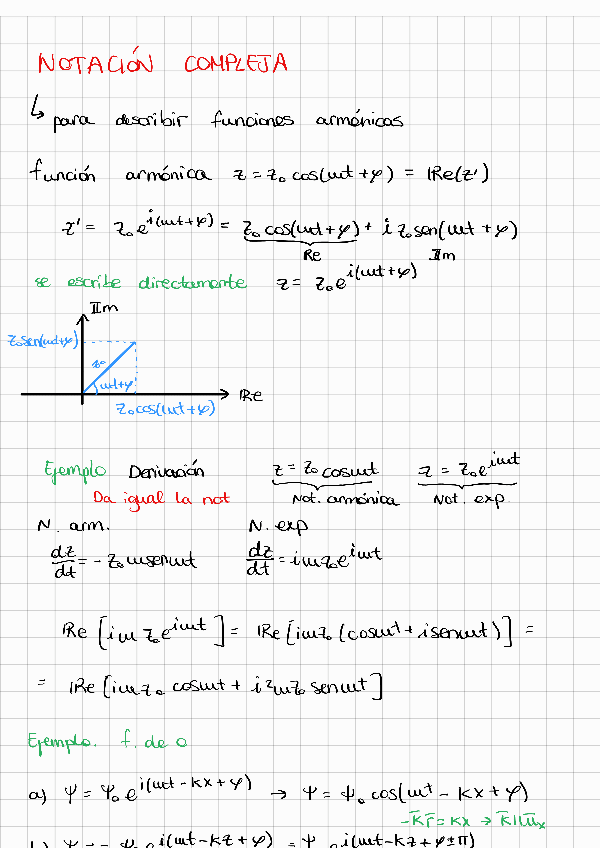 NOTACIÓN COMPLEJA
↳ para describir funciones armónicas
función armónica z = z₀ cos(ωt + φ) = Re(z')
z' = z₀e^i(ωt+φ) = z₀ cos(ωt+φ) + i z₀ sen(ωt + φ)
Re Im
se escribe directamente z = z₀e^i(ωt+φ)
Im
z₀sen(ωt+φ)
z₀
ωt+φ
Re
z₀cos(ωt+φ)
Ejemplo Derivación z = z₀ cosωt z = z₀e^iωt
Da igual la not Not. armónica Not. exp
N. arm. N. exp
dz/dt = - z₀ωsenωt dz/dt = iωz₀e^iωt
Re [iω z₀e^iωt] = Re[iωz₀ (cosωt + isenωt)] =
= Re[iωz₀ cosωt + i²ωz₀ senωt]
Ejemplo. f. de o
a) Ψ = Ψ₀ e^i(ωt-kx+φ) → Ψ = Ψ₀ cos(ωt - kx + φ)
-k̄r̄ = kx → k̄ || ūx
b) Ψ = - Ψ₀ e^i(ωt-kz+φ) = Ψ₀ e^i(ωt-kz+φ±π)